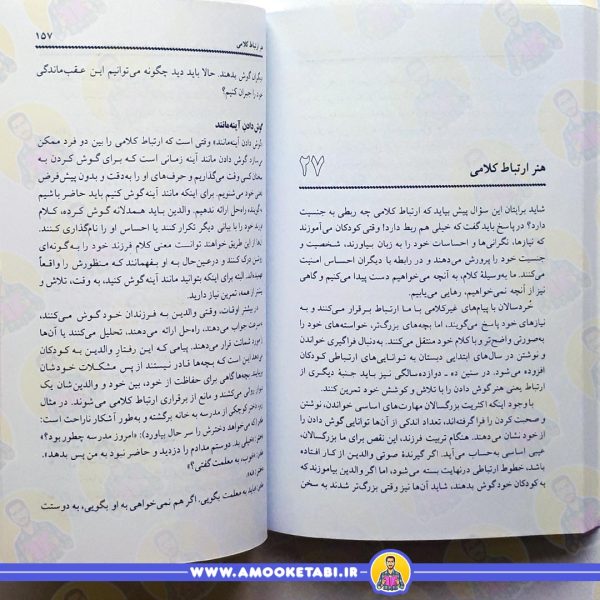 ۲۷
هنر ارتباط کلامی
شاید برایتان این سؤال پیش بیاید که ارتباط کلامی چه ربطی به جنسیت
دارد؟ در پاسخ باید گفت که خیلی هم ربط دارد! وقتی کودکان می‌آموزند
که نیازها، نگرانی‌ها و احساسات خود را به زبان بیاورند، شخصیت و
جنسیت خود را پرورش می‌دهند و در رابطه با دیگران احساس امنیت
می‌کنند. ما به‌وسیلهٔ کلام، به آنچه می‌خواهیم دست پیدا می‌کنیم و گاهی
نیز از آنچه نمی‌خواهیم، رهایی می‌یابیم.
خُردسالان با پیام‌های غیرکلامی با ما ارتباط برقرار می‌کنند و به
نیازهای خود پاسخ می‌گویند، اما بچه‌های بزرگ‌تر، خواسته‌های خود را
به‌صورتی واضح‌تر و با کلام خود منتقل می‌کنند. به‌دنبال فراگیری خواندن
و نوشتن در سال‌های ابتدایی دبستان به توانایی‌های ارتباطی کودکان
افزوده می‌شود. در سنین ده ـ دوازده‌سالگی نیز باید جنبهٔ دیگری از
ارتباط یعنی هنر گوش دادن را با تلاش و کوشش خود تمرین کنند.
با وجود اینکه اکثریت بزرگسالان مهارت‌های اساسی خواندن، نوشتن
و صحبت کردن را فراگرفته‌اند، تعداد اندکی از آن‌ها توانایی گوش دادن را
از خود نشان می‌دهند. هنگام تربیت فرزند، این نقص برای ما بزرگسالان،
عیبی اساسی به‌حساب می‌آید. اگر گیرندهٔ صوتی والدین از کار افتاده
باشد، خطوط ارتباطی درنهایت بسته می‌شود، اما اگر والدین بیاموزند که
به کودکان خود گوش بدهند، شاید آن‌ها نیز وقتی بزرگ‌تر شدند به سخن
هنر ارتباط کلامی
۱۵۷
دیگران گوش بدهند. حالا باید دید چگونه می‌توانیم این عقب‌ماندگی
خود را جبران کنیم؟
گوش دادن آینه‌مانند
«گوش دادن آینه‌مانند» وقتی است که ارتباط کلامی را بین دو فرد ممکن
می‌سازد. گوش دادن مانند آینه زمانی است که برای گوش کردن به
سخنان کسی وقت می‌گذاریم و حرف‌های او را به‌دقت و بدون پیش‌فرض
ذهنی خود می‌شنویم. برای اینکه مانند آینه گوش کنیم باید حاضر باشیم
به گوینده راه‌حل ارائه ندهیم. والدین باید همدلانه گوش کرده، کلام
فرزند خود را با بیانی دیگر تکرار کنند یا احساس او را نام‌گذاری کنند.
آنها از این طریق خواهند توانست معنی کلام فرزند خود را به گونه‌ای
روشن درک کنند و درعین‌حال به او بفهمانند که منظورش را واقعاً
فهمیده‌اند. البته برای اینکه بتوانید مانند آینه گوش کنید، به وقت، تلاش و
بیشتر از همه، تمرین نیاز دارید.
در بیشتر اوقات، وقتی والدین به فرزندان خود گوش می‌کنند،
به‌سرعت جواب می‌دهند، راه‌حل ارائه می‌دهند، تحلیل می‌کنند یا آن‌ها
را مورد شماتت قرار می‌دهند. پیامی که این رفتارِ والدین به کودکان
می‌دهد این است که بچه‌ها قادر نیستند از پس مشکلات خودشان
برآیند. بچه‌ها گاهی برای حفاظت از خود، بین خود و والدین‌شان یک
دیوار روانی می‌کشند و مانع از برقراری ارتباط کلامی می‌شوند. در مثال
زیر دختر کوچکی از مدرسه به خانه برگشته و به‌طور آشکار ناراحت است:
مادر (که می‌خواهد دخترش را سر حال بیاورد): «امروز مدرسه چطور بود؟»
دختر: «خیلی بد. دوستم مدادم را دزدید و حاضر نبود به من پس بدهد.»
مادر: «خوب، به معلمت گفتی؟»
دختر: «نه.»
مادر: «باید به معلمت بگویی. اگر هم نمی‌خواهی به او بگویی، به دوستت
WWW.AMOOKETABI.IR